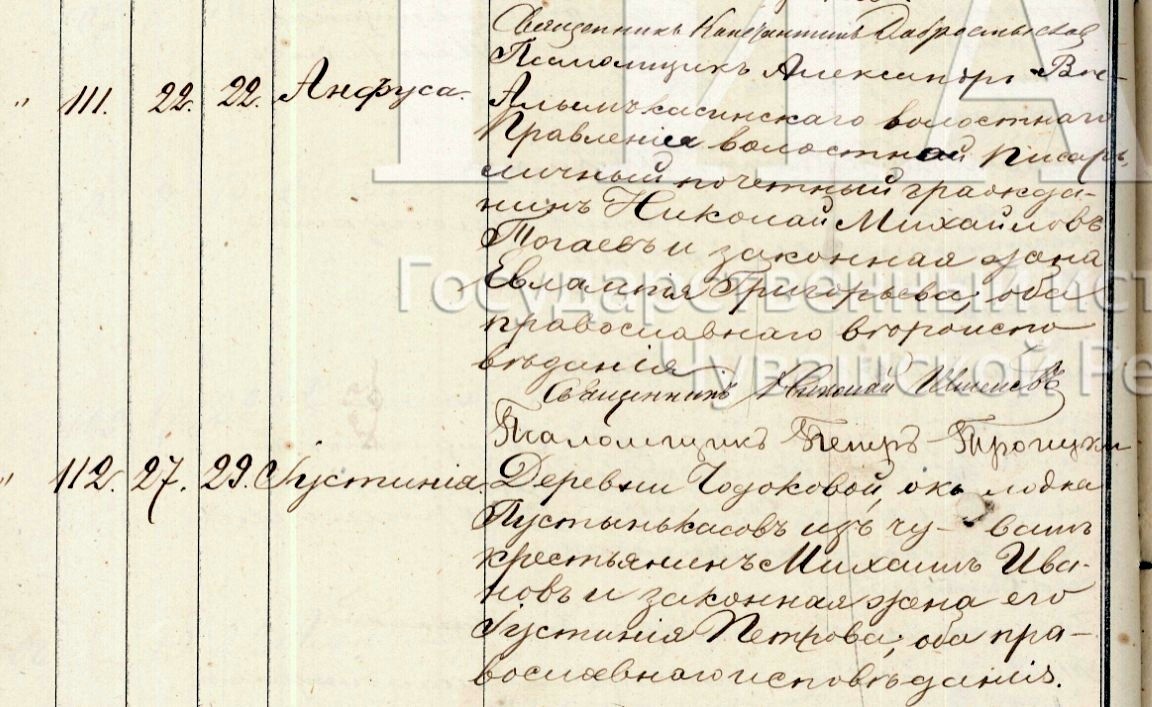 Священникъ Константинъ
Псаломщикъ Александръ
" 111. 22. 22. Анфуса. Алымъкасинскаго волостнаго
Правленія волостной писарь,
личный почетный гражда-
нинъ Николай Михайловъ
Тогаевъ и законная жена
Евлампія Григорьева; оба
православнаго вѣроиспо
вѣданія
Священникъ Николай
Псаломщикъ Петръ Троицкій
" 112. 27. 29. Іустинія. Деревни Чодоковой, око лодка
Пустынькасовъ изъ чу- вашъ
крестьянинъ Михаилъ Ива-
новъ и законная жена его
Іустинія Петрова; оба пра-
вославнаго исповѣданія.
Государственный ист
Чувашской Ре